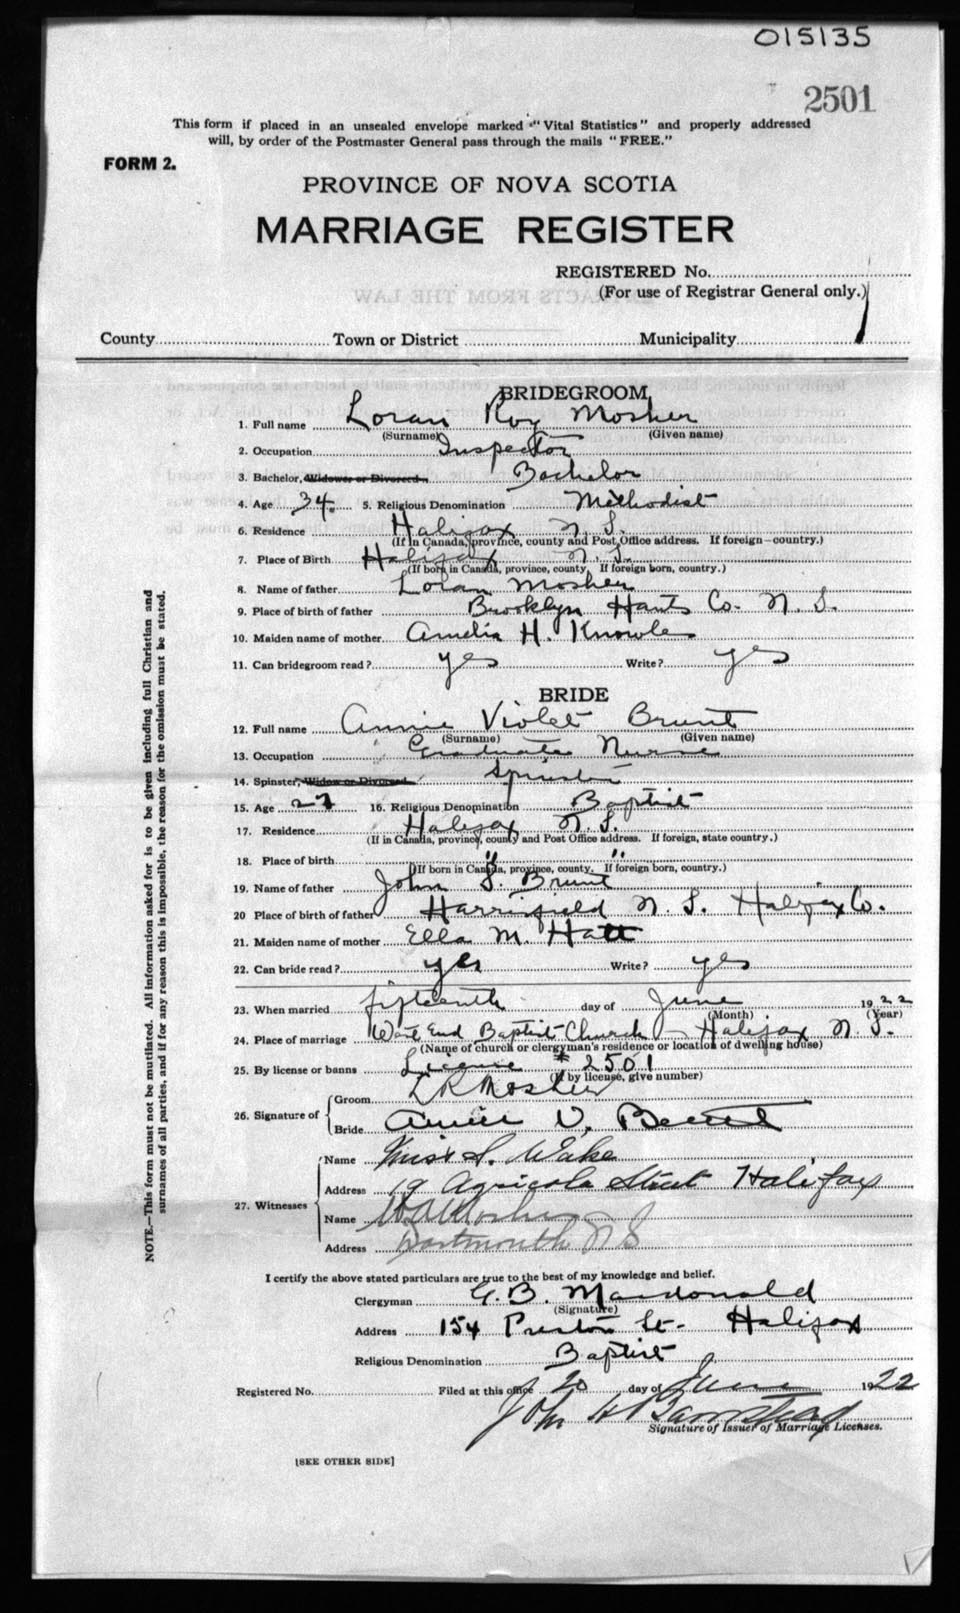 015135
2501
This form if placed in an unsealed envelope marked "Vital Statistics" and properly addressed
will, by order of the Postmaster General pass through the mails "FREE."
FORM 2.
PROVINCE OF NOVA SCOTIA
MARRIAGE REGISTER
REGISTERED No.
(For use of Registrar General only.)
County Town or District Municipality
BRIDEGROOM
1. Full name Loran Roy Mosher
(Surname) (Given name)
2. Occupation Inspector
3. Bachelor, Widower or Divorced Bachelor
4. Age 34. 5. Religious Denomination Methodist
6. Residence Halifax N.S.
(If in Canada, province, county and Post Office address. If foreign—country.)
7. Place of Birth Halifax N.S.
(If born in Canada, province, county, If foreign born, country.)
8. Name of father Loran Mosher
9. Place of birth of father Brooklyn Hants Co. N.S.
10. Maiden name of mother Amelia H. Knowles
11. Can bridegroom read? yes Write? yes
BRIDE
12. Full name Annie Violet Brunt
(Surname) (Given name)
13. Occupation Graduate Nurse
14. Spinster, Widow or Divorced Spinster
15. Age 27 16. Religious Denomination Baptist
17. Residence Halifax N.S.
(If in Canada, province, county and Post Office address. If foreign, state country.)
18. Place of birth " "
(If born in Canada, province, county. If foreign born, country.)
19. Name of father John S. Brunt
20 Place of birth of father Harrisfield N.S. Halifax Co.
21. Maiden name of mother Ella M. Hatt
22. Can bride read? yes Write? yes
23. When married fifteenth day of June 1922
(Month) (Year)
24. Place of marriage West End Baptist Church Halifax N.S.
(Name of church or clergyman's residence or location of dwelling house)
25. By license or banns License # 2501
(If by license, give number)
26. Signature of Groom LR Mosher
Bride Annie V. Brunt
27. Witnesses Name Miss S. Wake
Address 19 Agricola Street Halifax
Name Mosher
Address Dartmouth N S
I certify the above stated particulars are true to the best of my knowledge and belief.
Clergyman G. B. Macdonald
(Signature)
Address 154 Preston St. Halifax
Religious Denomination Baptist
Registered No. Filed at this office 20 day of June 1922
John H Barnstead
Signature of Issuer of Marriage Licenses.
[SEE OTHER SIDE]
NOTE.—This form must not be mutilated. All information asked for is to be given including full Christian and
surnames of all parties, and if for any reason this is impossible, the reason for the omission must be stated.